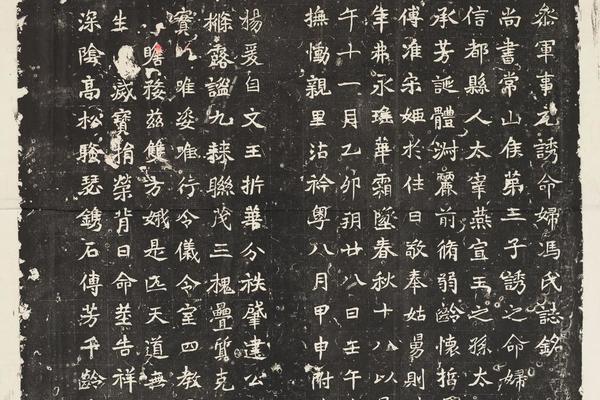 參軍事元誘命婦馮氏誌銘
尚書常山侯第三子誘之命婦
信都縣人太宰燕宣王之孫太
承芳誕體淵麗前脩弱齡懷哲
傅准宋姬於往日敬奉姑舅則
年弗永瓊華霜墜春秋十八以
午十一月乙卯朔廿八日壬午
撫慟親里沾衿粵八月甲申附
楊爰自文王折華分袟肇建公
露謐九棘聯茂三槐疊質克
寶唯姿唯行令儀令室四教
瞻茲雙方娥是匹天道無
生滅寶捐榮背日命筮告祥
深陰高松騷瑟鐫石傳芳千齡